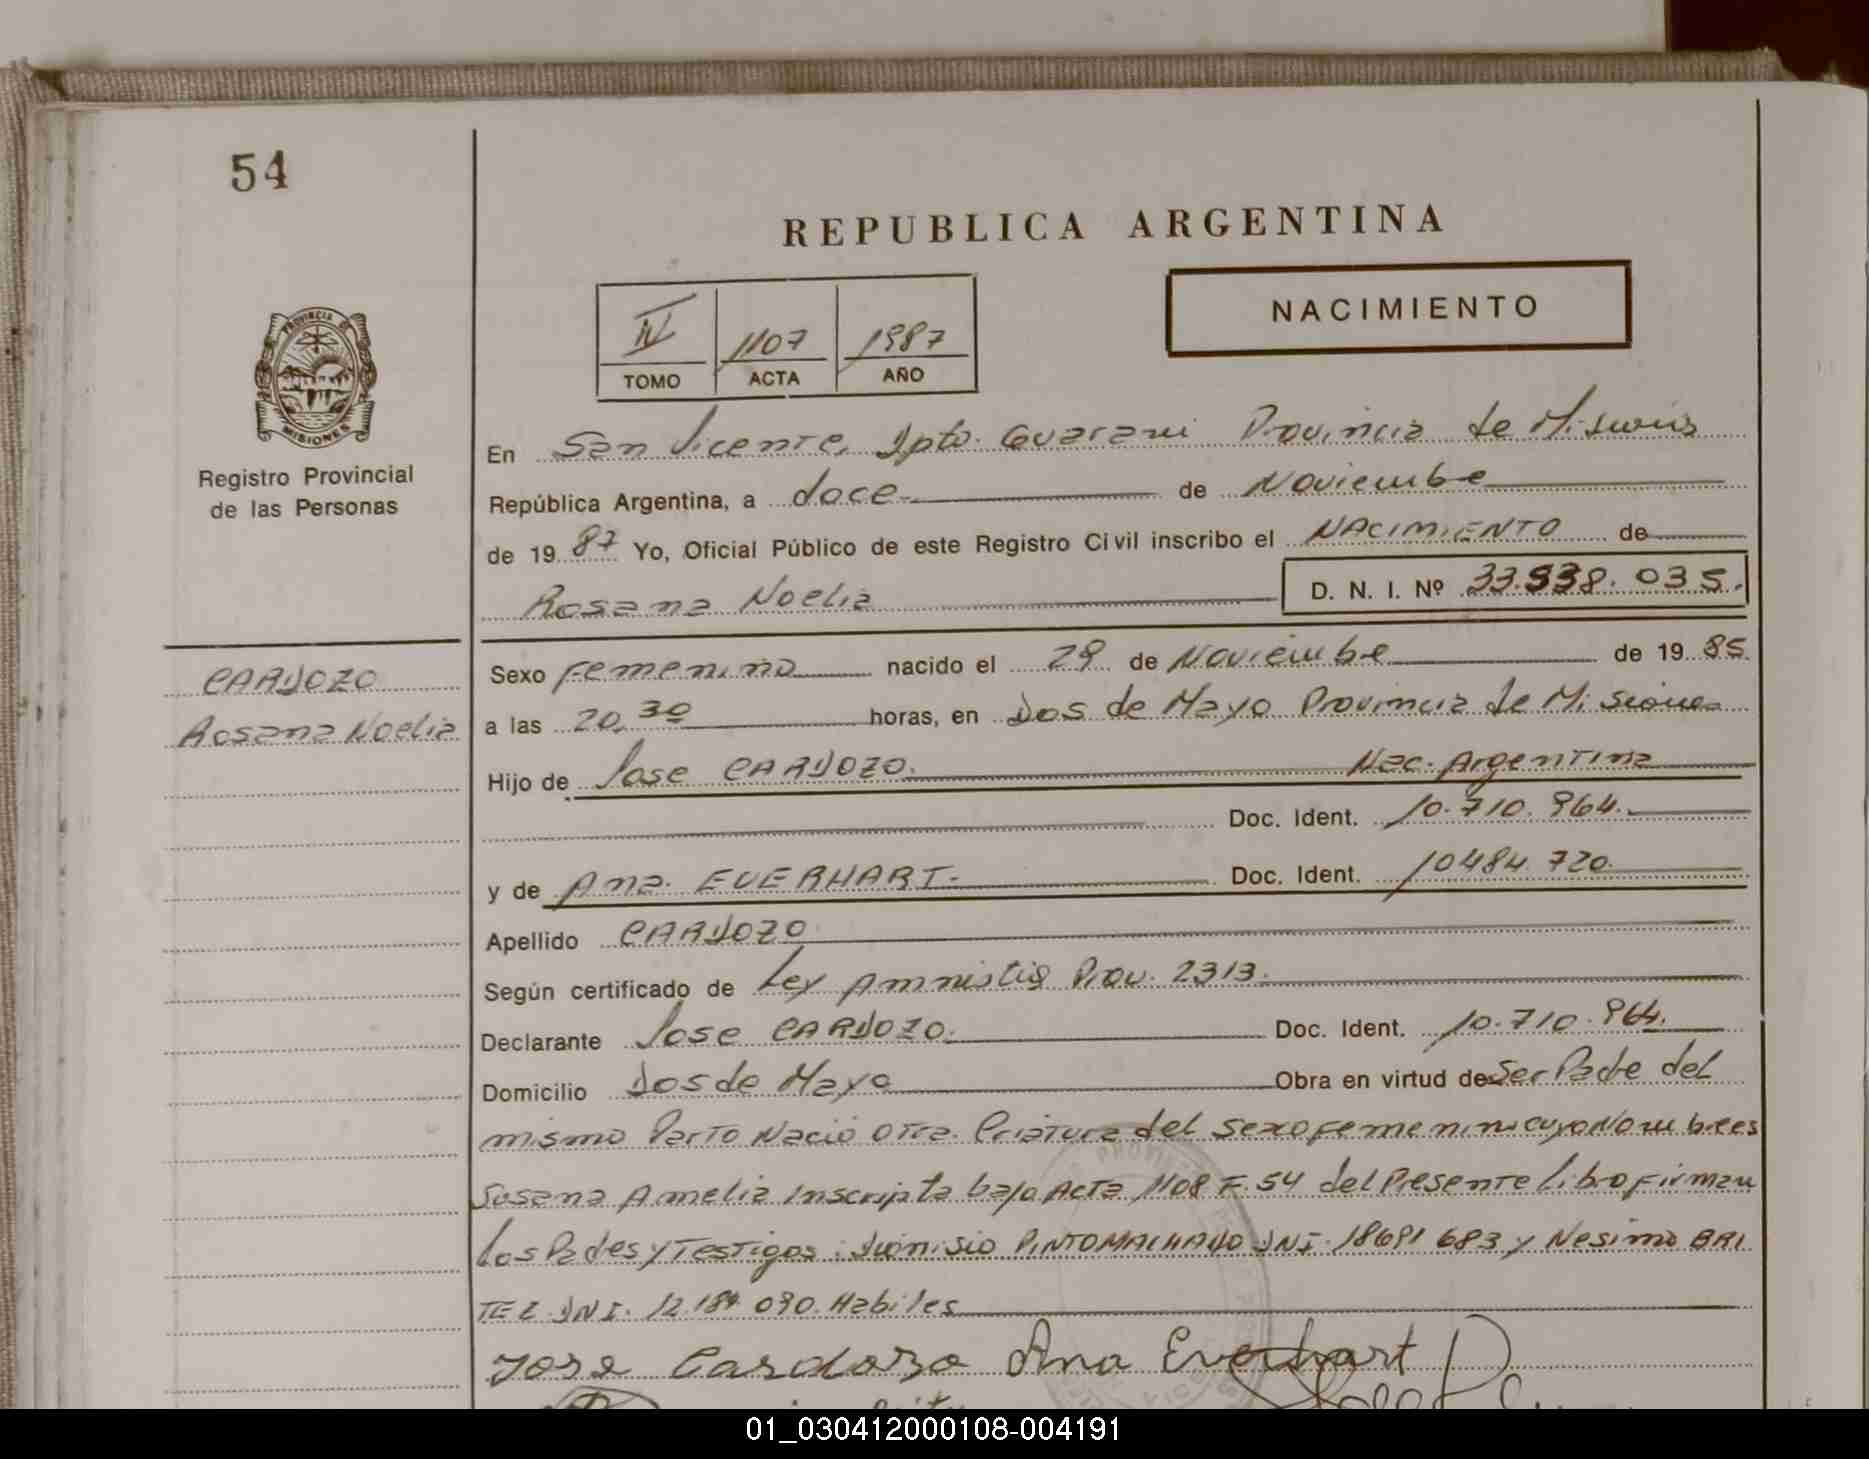 54
REPUBLICA ARGENTINA
IV 1107 1987
TOMO ACTA AÑO
NACIMIENTO
PROVINCIA DE
MISIONES
Registro Provincial
de las Personas
En San Vicente, Dpto. Guarani Provincia de Misiones
República Argentina, a doce de Noviembe
de 1987 Yo, Oficial Público de este Registro Civil inscribo el NACIMIENTO de
Rosana Noelia D. N. I. Nº 33.538.035.
CARDOZO
Rosana Noelia
Sexo Femenino nacido el 29 de Noviembe de 1985
a las 20,30 horas, en Dos de Mayo Provincia de Misiones
Hijo de Jose CARDOZO. Nac. Argentina
Doc. Ident. 10.710.964.
y de Ana. EVERHART. Doc. Ident. 10484.720.
Apellido CARDOZO
Según certificado de Ley Amnistia Prov. 2313.
Declarante Jose CARDOZO. Doc. Ident. 10.710.964.
Domicilio Dos de Mayo Obra en virtud de Ser Padre del
mismo Parto Nacio otra. Criatura del sexo femenino cuyo Nombre es
Susana Amelia Inscripta bajo Acta 1108 F. 54 del Presente Libro Firman
los Padres y Testigos: Dionisio PINTOMACHADO DNI. 18691683 y Nesimo BRI
TEZ DNI. 12.184.090. Habiles
Jose Cardozo Ana Everhart
01_030412000108-004191